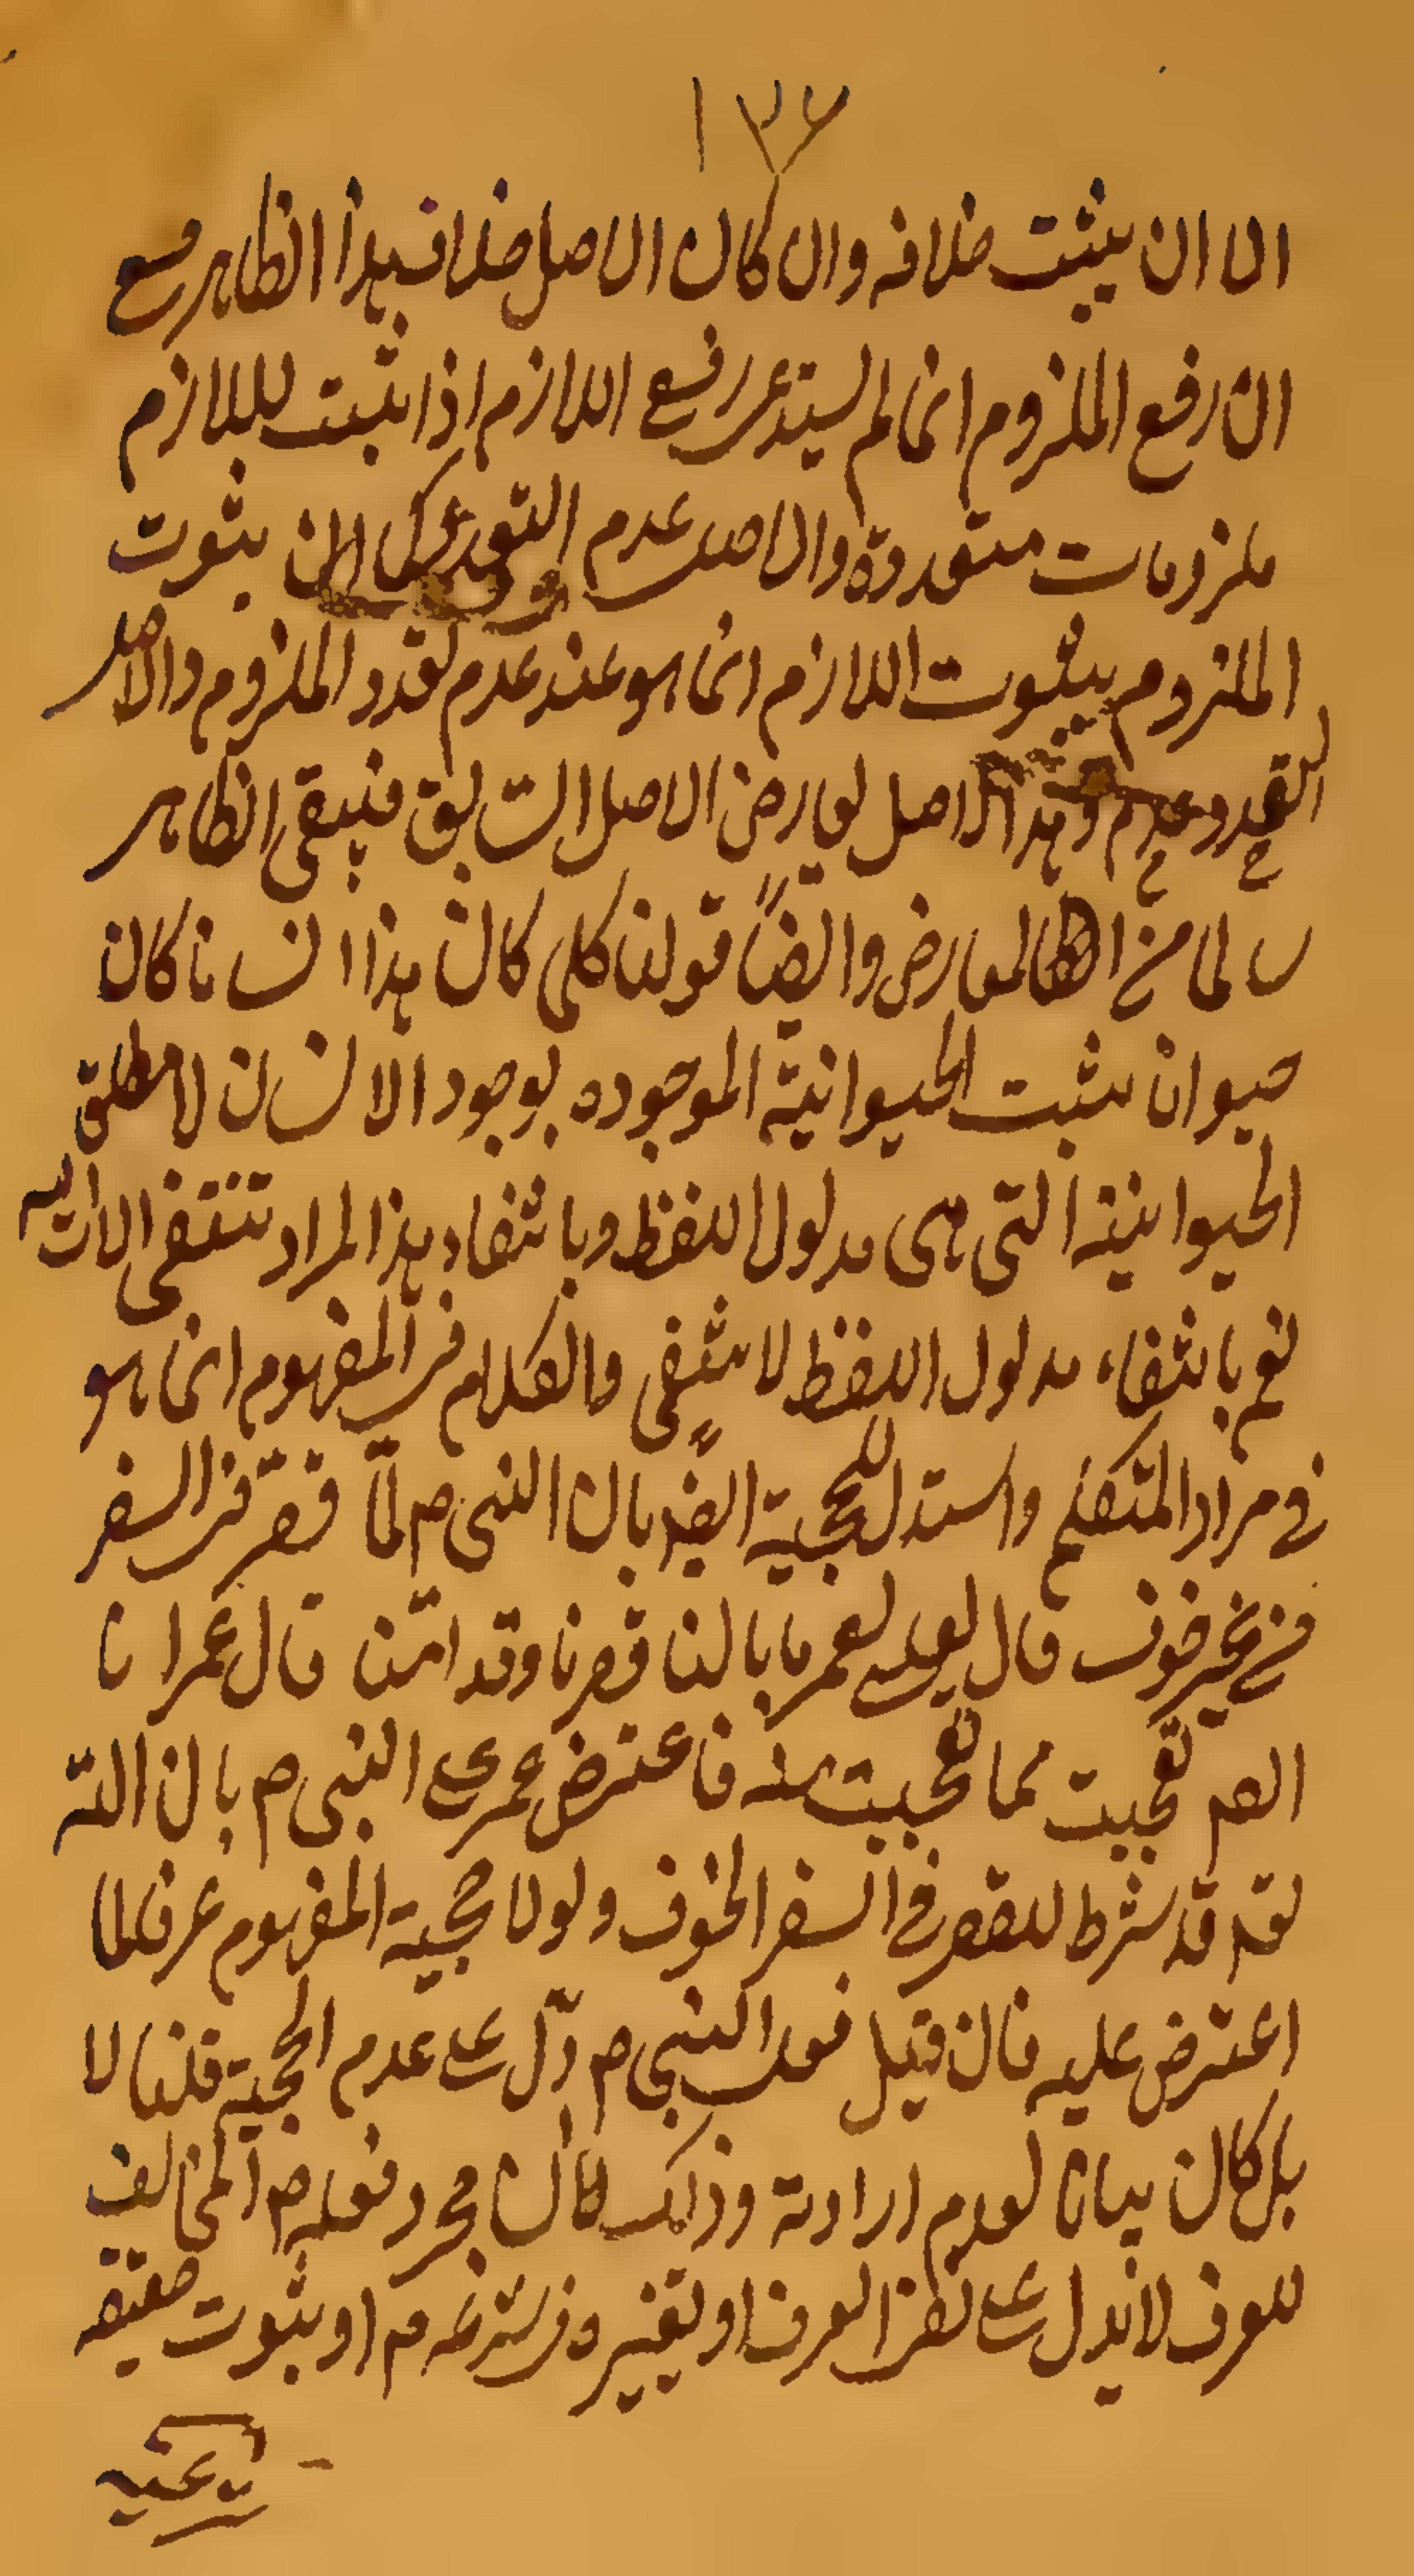 ١٣٦
الا ان يثبت خلافه وان كان الاصل خلاف هذا الظاهر مع
ان رفع الملزوم انما لم يستدع رفع اللازم اذا ثبت لللازم
ملزومات متعددة والاصل عدم التعدد كما ان ثبوت
الملزوم بثبوت اللازم انما هو عند عدم تعدد الملزوم والاصل
التعدد وعدم وهذا الاصل يعارض الاصل السابق فيبقى الظاهر
سالما من المعارض وايضاً قولنا كلما كان هذا انسانا كان
حيوانا يثبت الحيوانية الموجوده بوجود الانسان لا مطلق
الحيوانية التي هي مدلول اللفظ وبانتفاء هذا المراد تنتفى الانسانية
نعم بانتفاء مدلول اللفظ لا ينتفى والكلام فى المفهوم انما هو
فى مراد المتكلم واستدل للحجية ايضاً بان النبى ص لمّا قصّر فى السفر
فى غير خوف قال يعلى لعمر ما بالنا قصرنا وقد امنّا قال عمر انا
ايضم تعجبت مما تعجبت منه فاعترض عمر على النبى ص بان الله
تع قد شرط للقصر فى السفر الخوف ولولا حجية المفهوم عرفا لما
اعترض عليه فان قيل فعل النبى ص دلّ على عدم الحجية قلنا لا
بل كان بيانا لعدم ارادته وذلك لان مجرد فعله ص المخالف
للعرف لا يدل على نقض العرف او تغييره فى شرعه م او ثبوت حقيقة
شرعيه